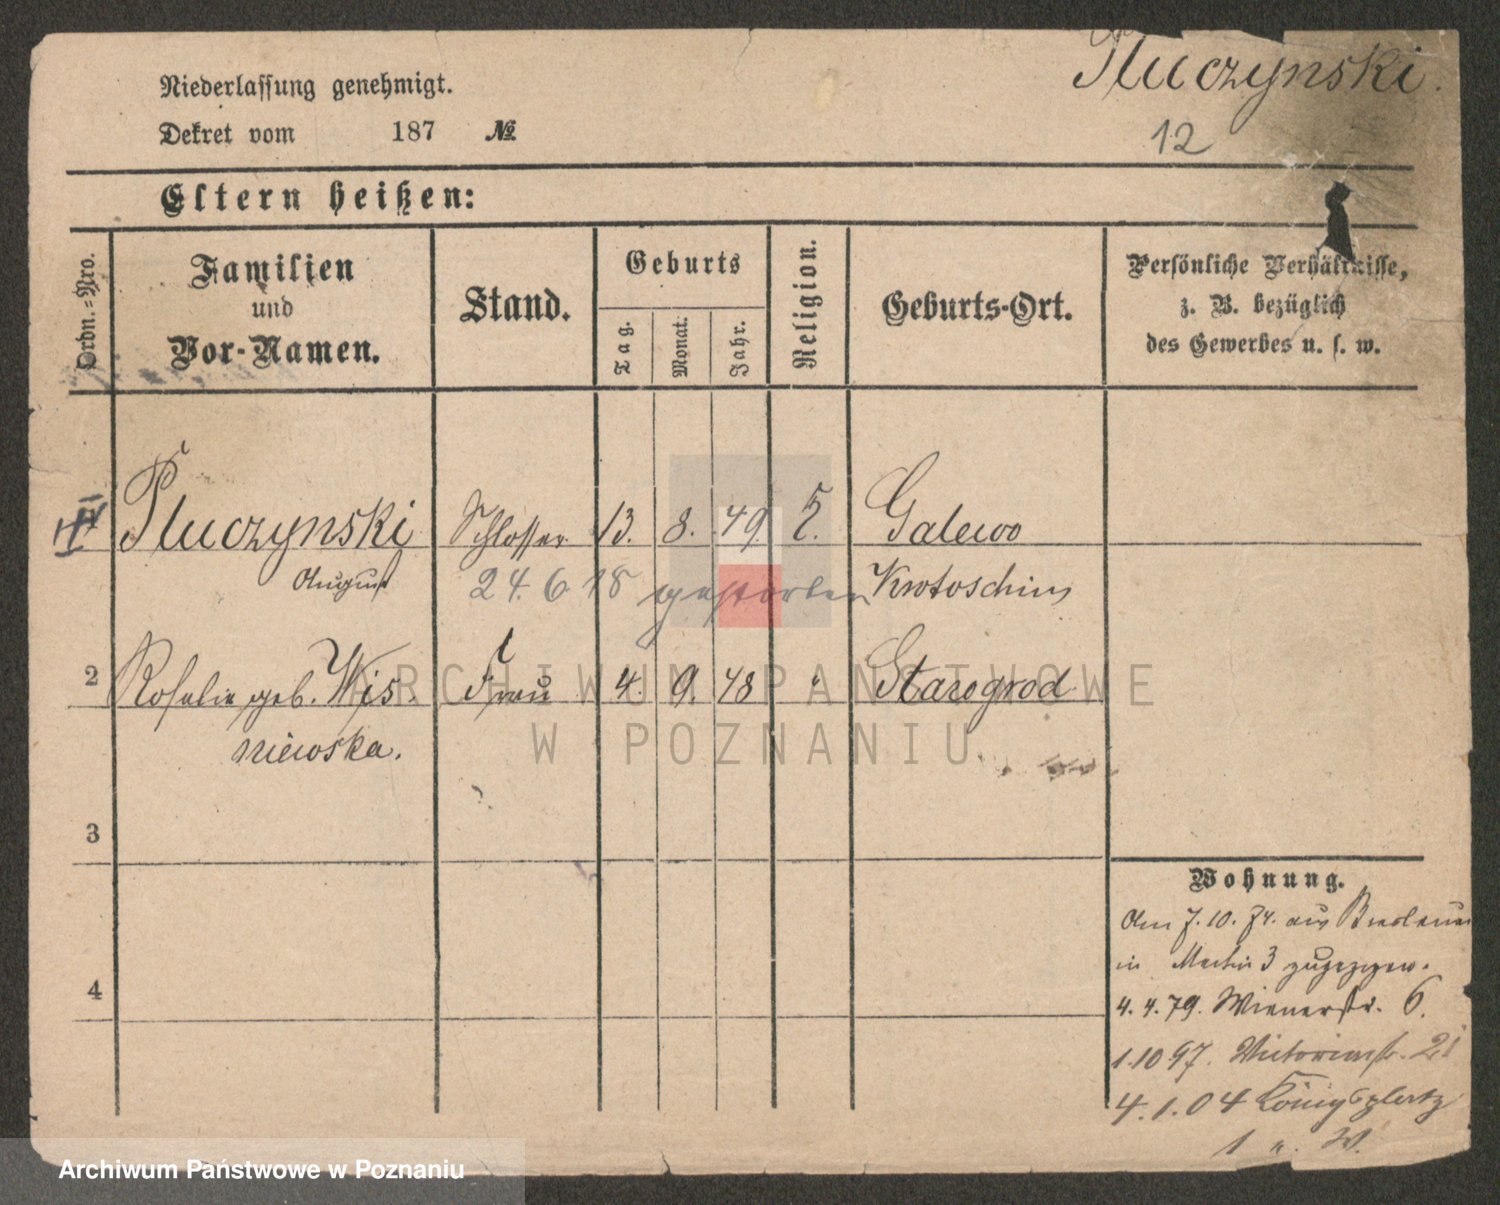 Pluczynski.
12
Niederlassung genehmigt.
Dekret vom 187 №
Eltern heißen:
Ordn.=Nro.
Familien
und
Vor-Namen.
Stand.
Geburts
Tag.
Monat.
Jahr.
Religion.
Geburts-Ort.
Persönliche Verhältnisse,
z. B. bezüglich
des Gewerbes u. s. w.
Pluczynski Schlosser 13. 8. 49. Galewo
August 24.6 18 gestorben Krotoschin
2 Rosalie geb. Wis- Frau 4. 9. 48 " Starogrod
niewska.
3
4
Wohnung.
Am 7.10.74. aus Breslau
in Martin 3 zugezogen.
4.4.79. Wienerstr. 6.
1.10 97. Victoriastr. 21
4.1.04 Königsplatz
1 u. W.
ARCHIWUM PAŃSTWOWE
W POZNANIU
Archiwum Państwowe w Poznaniu